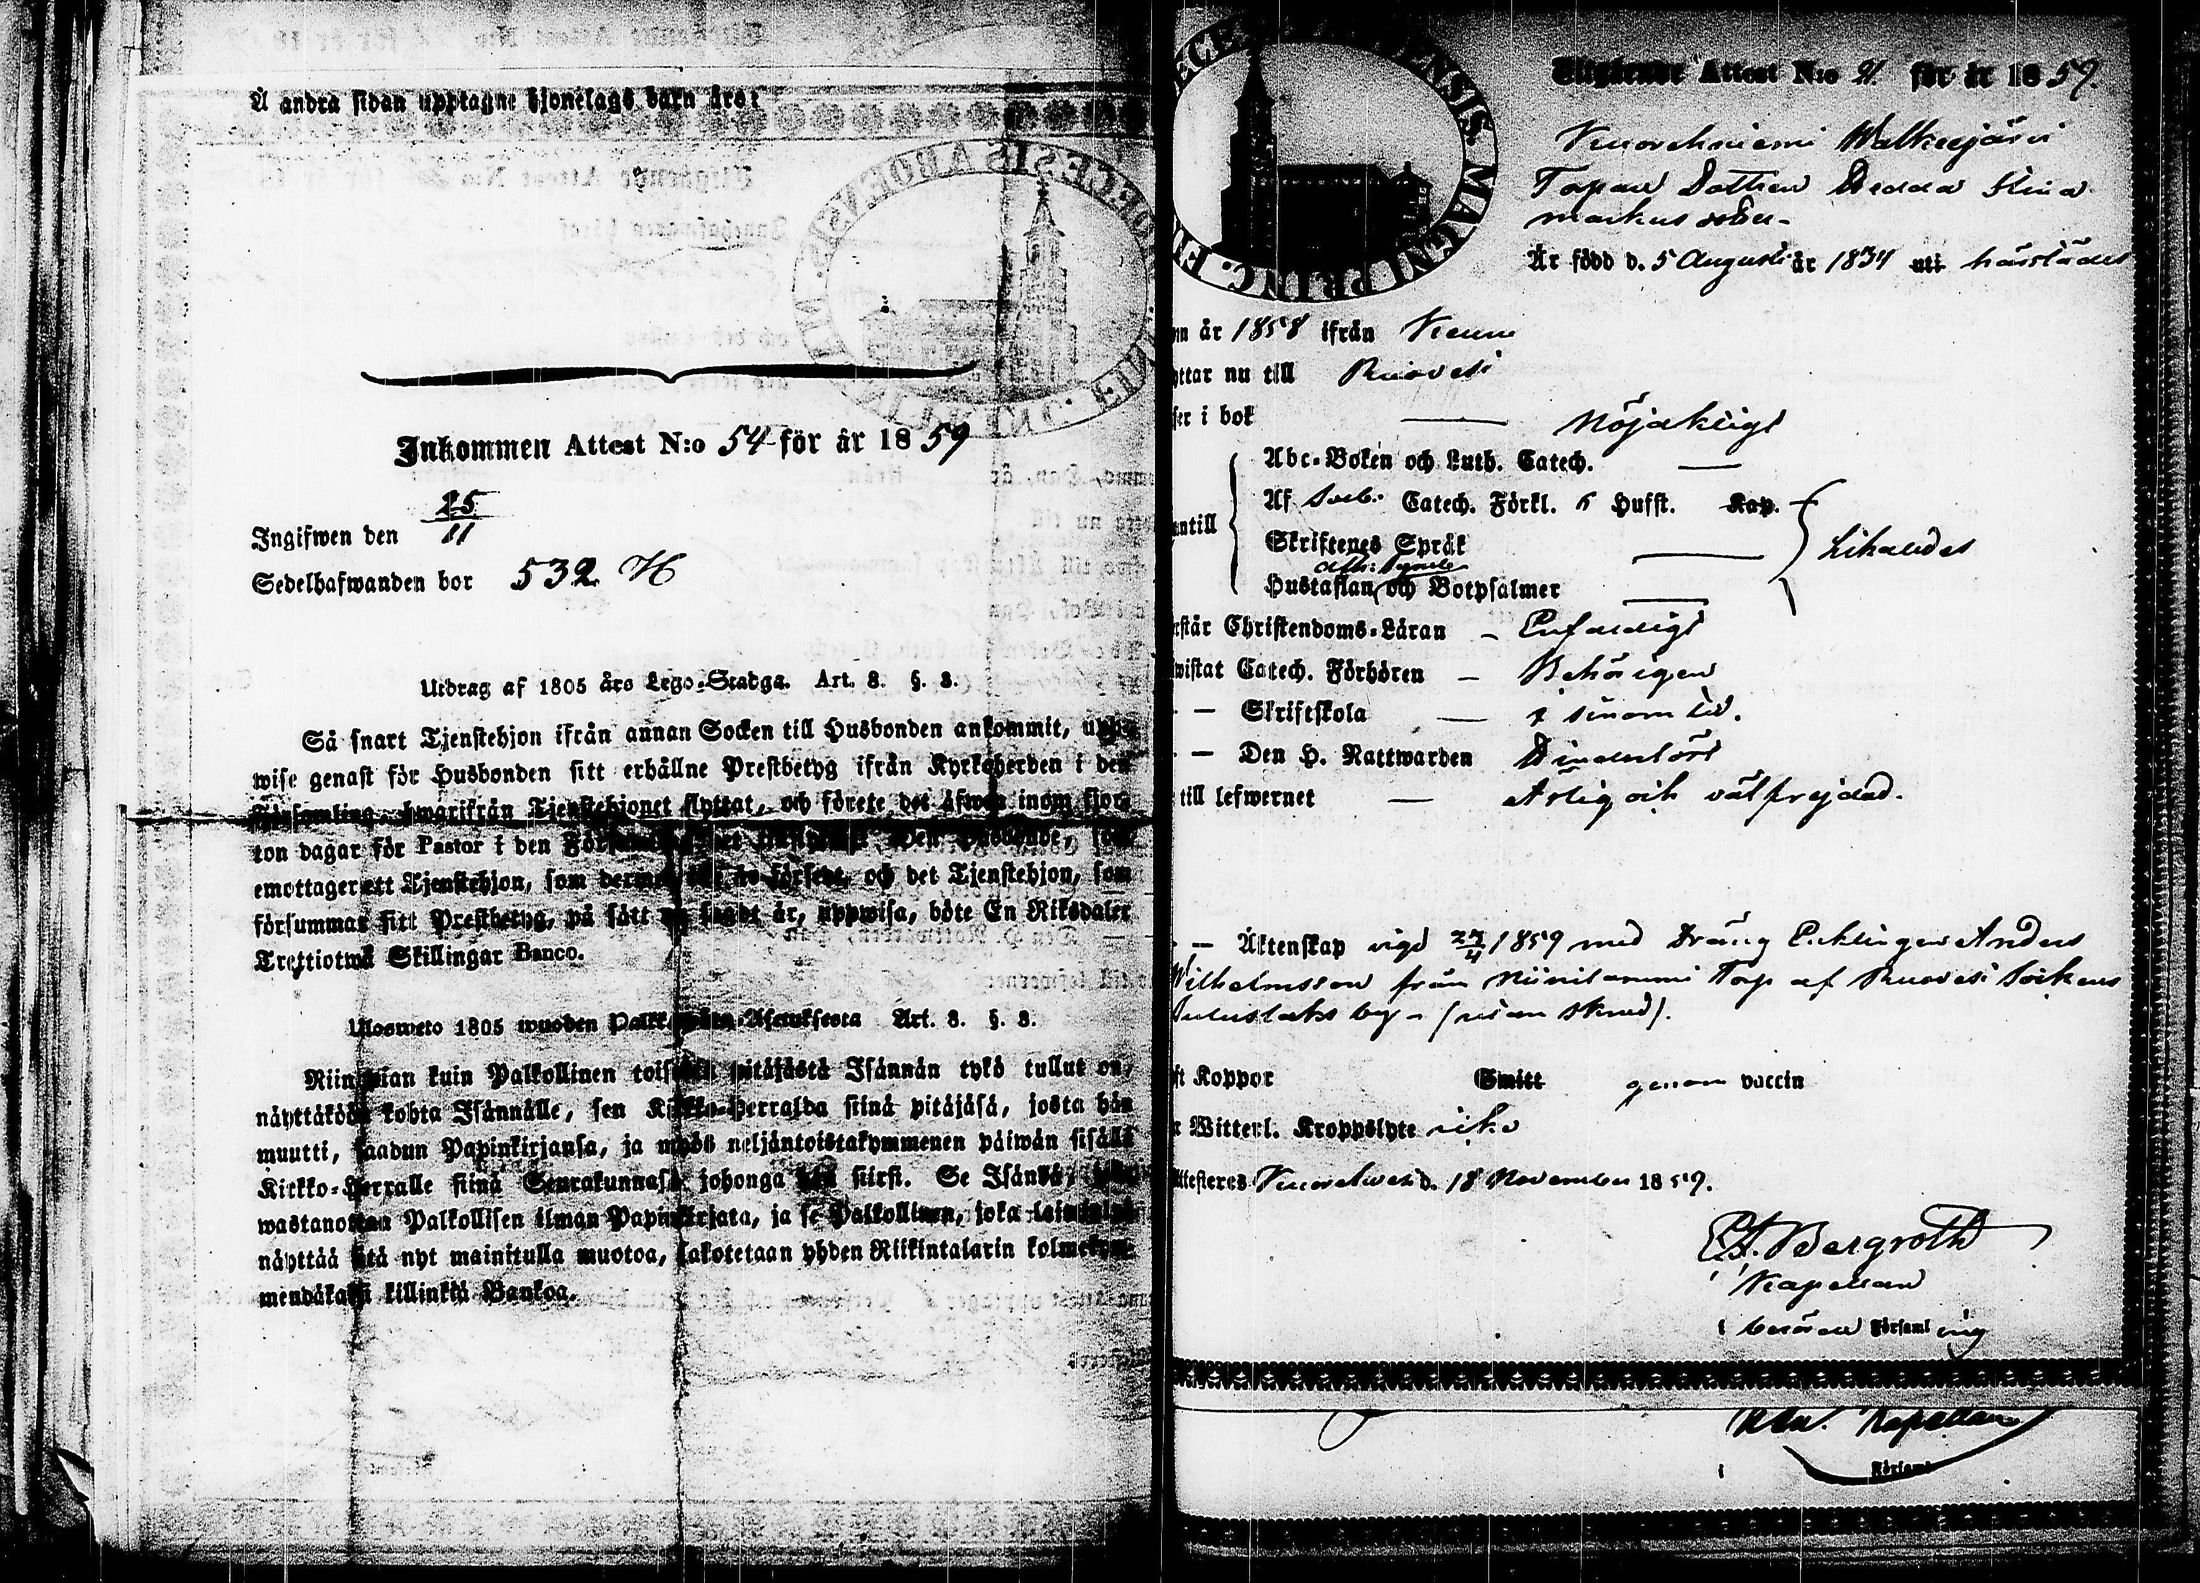 Å andra sidan upptagne hjonelags barn äro:
Inkommen Attest N:o 54 för år 1859
25
11
Ingifwen den
Sedelhafwanden bor 532 H
Utdrag af 1805 års Lego-Stadga. Art. 8. §. 8.
Så snart Tjenstehjon ifrån annan Socken till Husbonden ankommit, uppwise
wise genast för Husbonden sitt erhållne Prestbetyg ifrån Kyrkoherden i den
Församling, hwarifrån Tjenstehjonet flyttat, och förete det äfwen inom fjor-
ton dagar för Pastor i den
emottager ett Tjenstehjon, som och det Tjenstehjon, som
försummar sitt Prestbetyg, på sätt är, uppwisa, böte En Riksdaler
Trettiotwå Skillingar Banco.
Ulosweto 1805 wuoden Asetuksesta Art. 8. §. 8.
Niin pian kuin Palkollinen pitäjästä Isännän tykö tullut on,
näyttäköön kohta Isännälle, sen Kirkko-Herralda siinä pitäjäsä, josta hän
muutti, saadun Papinkirjansa, ja myös neljäntoistakymmenen päiwän sisällä
Kirkko-Herralle siinä Seurakunnasa johonga hän siirsi. Se Isäntä,
wastanottaa Palkollisen ilman Papinkirjata, ja se Palkollinen, joka
näyttää sitä nyt mainitulla muotoa, sakotetaan yhden Riikintalarin kolmekym-
mendäkaksi killinkiä Bankoa.
DIOECESIS ABOENSIS
Utgående Attest N:o 21. för år 1859.
Kuorehniemi Walkejärvi
Torpare Dottren Hedda Stina
Markus dotter
Är född d. 5 Augusti år 1834 uti härstädes
ENSIS. MAGNI PRINC. FIN
år 1858 ifrån Keuru
ttar nu till Ruovesi
ser i bok — Nöjaktligt
Abc-Boken och Luth. Catech. —
Af Sveb. Catech. Förkl. 5 Hufst. Kap.
antill
Skriftenes Språk — Likaledes
Ath: Symb:
Hustaflan, och Botpsalmer —
rstår Christendoms-Läran – Enfaldigt
wistat Catech. Förhören – Behörigen
– Skriftskola — i sinom tid.
– Den H. Nattwarden Oinderlöst
till lefwernet — Ärlig och välfrejdad.
– Äktenskap vigd 24/4 1859 med Dräng Anders
Wilhelmsson från Niinilammi Torp af Ruovesi Sockens
by – (utan skuld).
Koppor Smitt genom vaccin
r Witterl. Kroppslyte icke
Attesteres Kuorehvesi d. 18 November 1859.
Bergroth
Kapellan
i berörde Församling
Kapellan
i Församl